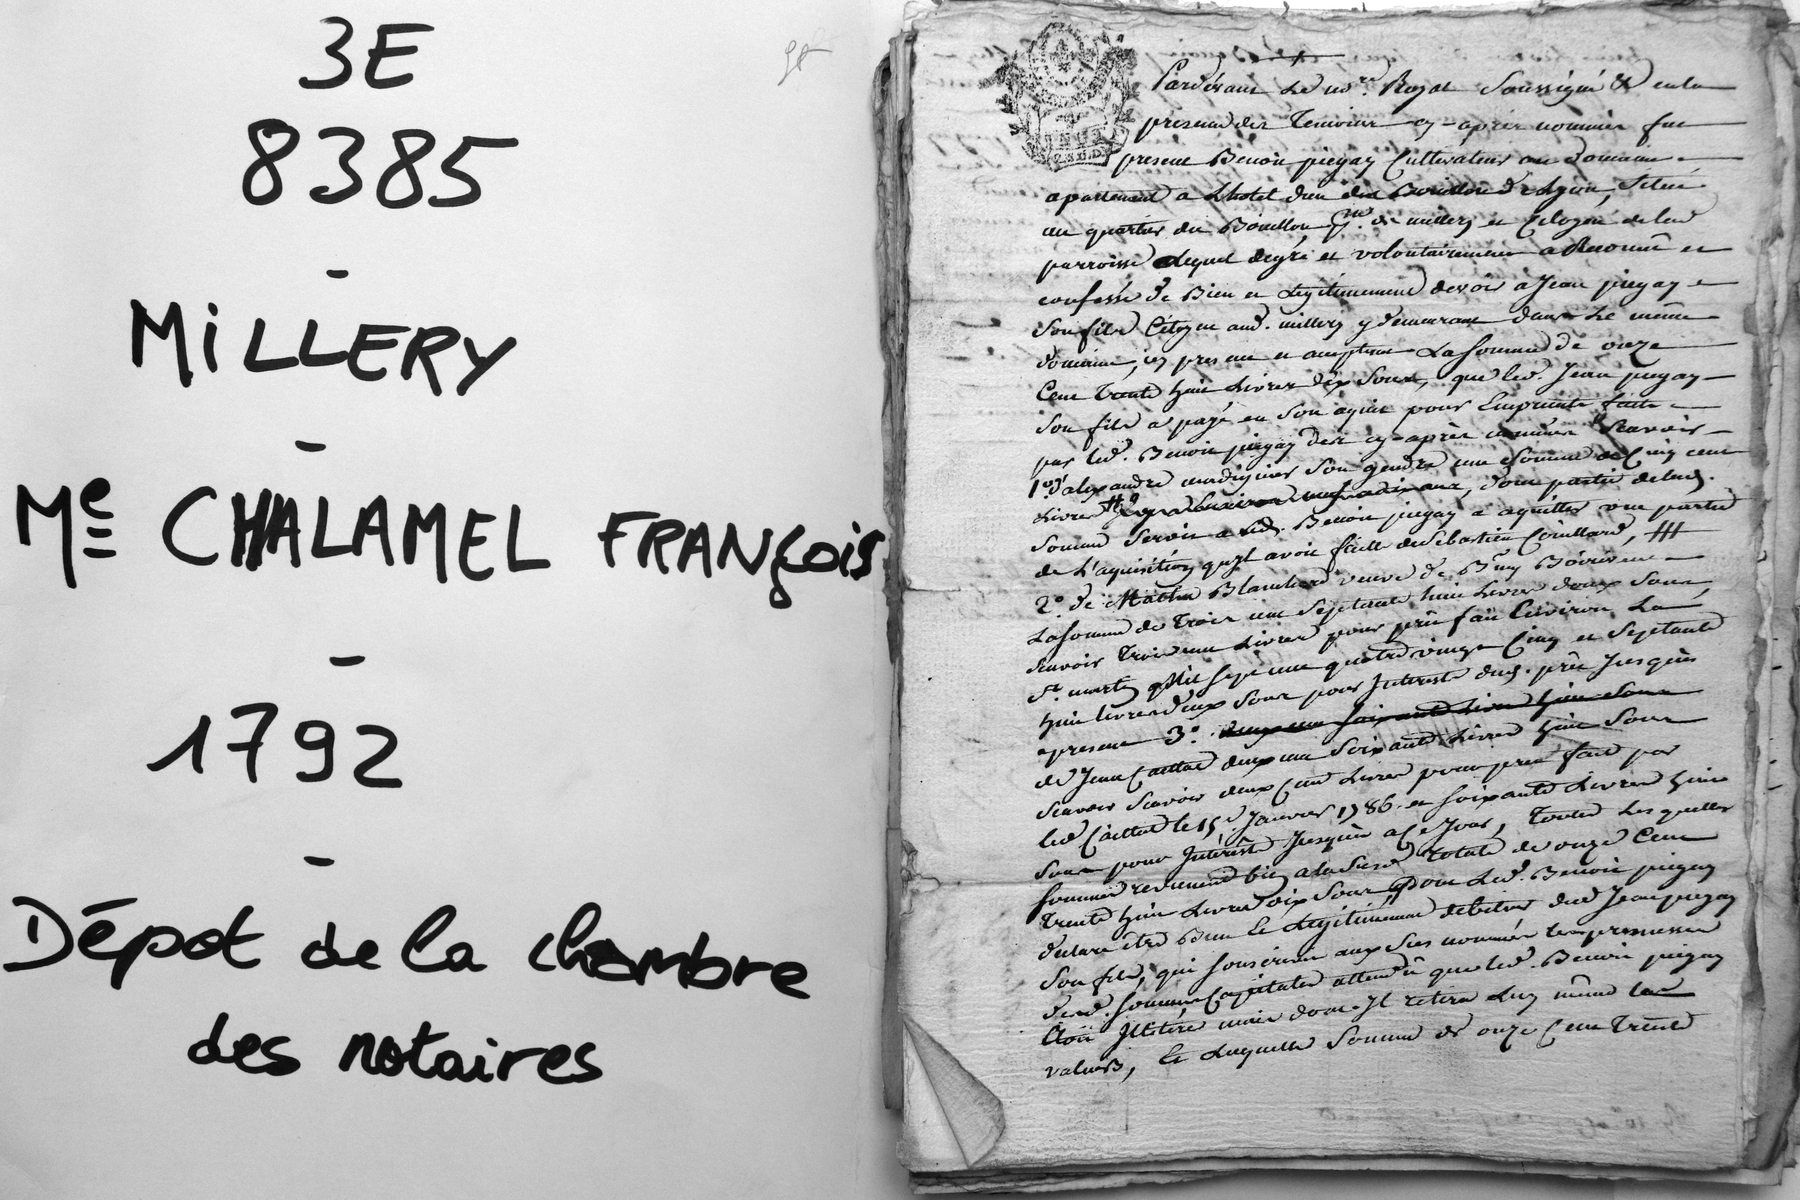 3E
8385
-
MiLLERY
-
Me CHALAMEL FRANçois
-
1792
-
Dépot de la chambre
des notaires
Pardevant Le no.re Royal Soussigné & en la
presence des Temoins cy-après nommés fut
present Benoit piegay Cultivateur au Domaine
apartenant a Lhotel dieu de Lyon, Situé
au quartier du Bouillon p.sse de millery et Citoyen de lad
parroisse Lequel de gré et volontairement a Reconnu et
confessé de Bien et Legitimement devoir à Jean piegay
Son fils Citoyen aud. millery y demeurant dans Le même
domaine, icy present et acceptant La Somme de onze
Cent Trente huit Livres dix Sous, que led. Jean piegay
Son fils a payé en Son aquit pour Emprunts faits
par led. Benoit piegay des cy-après nommés Scavoir
1.o d'alexandre Son gendre une Somme de Cinq cent
Livres dont partie de lad.
Somme Servit a Led. Benoit piegay a aquitter une partie
de L'aquisition qu'il avoit faitte de Sebastien
2.o de Blanchard veuve de
La Somme de Trois cent Septante huit Livres douze Sous
Scavoir Trois cent Livres pour prêt fait Environ La
S.t martin mil Sept cent quatre vingt Cinq et Septante
huit livres deux Sous pour Interets dud. prêt Jusques
apresent 3.o
de Jean Caillat deux cent Soixante Livres huit Sous
Scavoir Scavoir deux Cent Livres pour prêt fait par
led Caillat le 15 Janvier 1786 et Soixante Livres huit
Sous pour Interêts Jusqu'à Ce Jour, Toutes Les quelles
Sommes reviennent bien a la Susd totale de onze Cent
Trente huit Livres dix Sous, dont Led. Benoit piegay
declare être Bien et Legitimement debiteur dud Jean piegay
Son fils, qui Souscrivit aux Sus nommés les promesses
desd. Sommes Capitales attendu que led. Benoit piegay
Etoit Illitéré mais dont Il retira Luy même les
valeurs, Et Laquelle Somme de onze Cent Trente